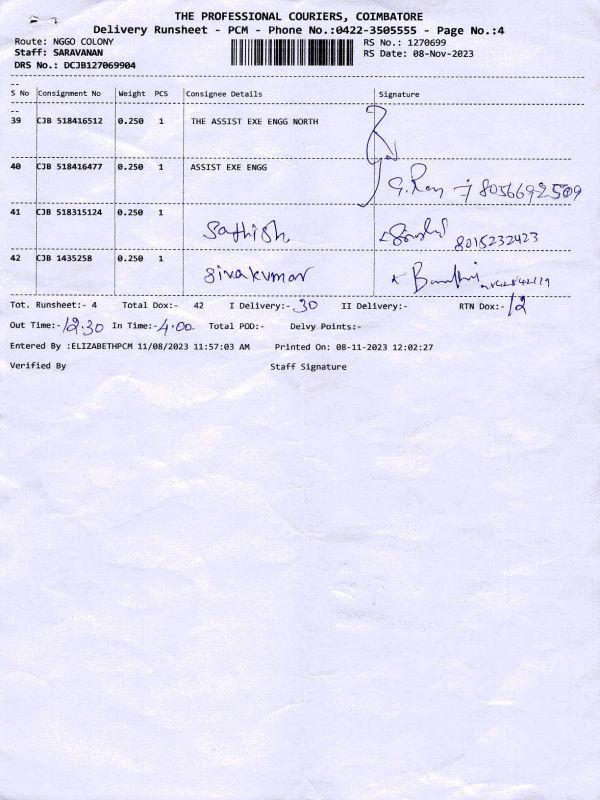 THE PROFESSIONAL COURIERS, COIMBATORE
Delivery Runsheet - PCM - Phone No.:0422-3505555 - Page No.:4
Route: NGGO COLONY RS No.: 1270699
Staff: SARAVANAN RS Date: 08-Nov-2023
DRS No.: DCJB127069904
S No Consignment No Weight PCS Consignee Details Signature
39 CJB 518416512 0.250 1 THE ASSIST EXE ENGG NORTH
40 CJB 518416477 0.250 1 ASSIST EXE ENGG
8056692509
41 CJB 518315124 0.250 1 Sathish, 8015232423
42 CJB 1435258 0.250 1 Sivakumar
Tot. Runsheet:- 4 Total Dox:- 42 I Delivery:- 30 II Delivery:- RTN Dox:- 12
Out Time:- 12.30 In Time:- 4.00 Total POD:- Delvy Points:-
Entered By :ELIZABETHPCM 11/08/2023 11:57:03 AM Printed On: 08-11-2023 12:02:27
Verified By Staff Signature